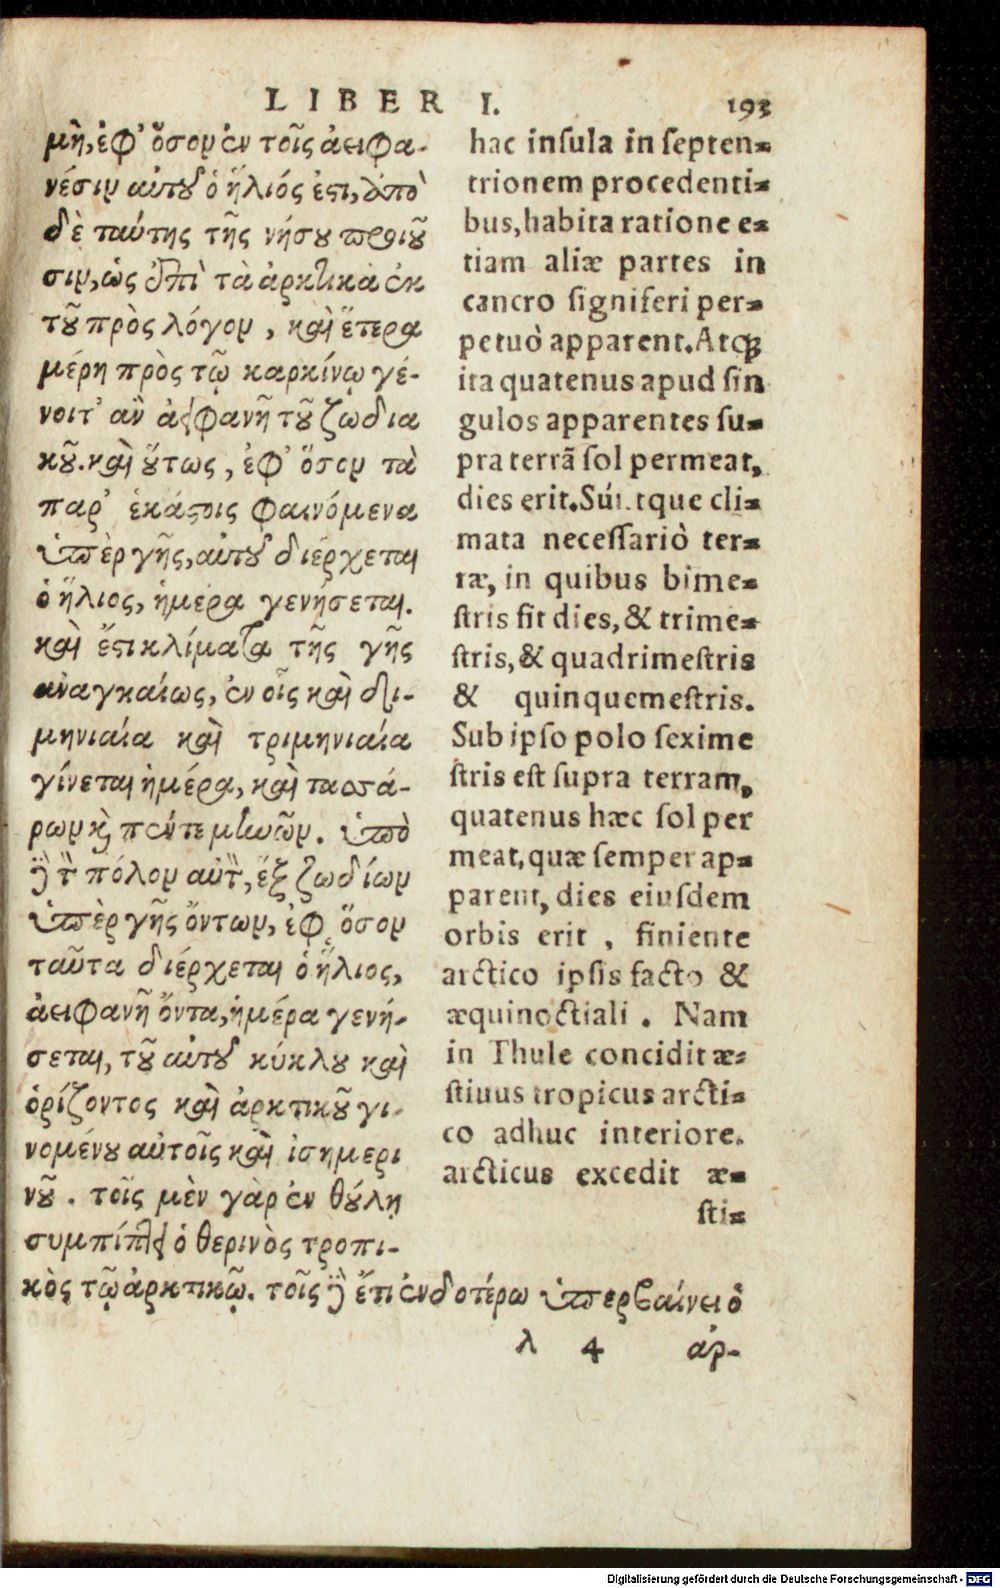 LIBER I. 193
μὴ, ἐφ' ὅσον ἐν τοῖς ἀειφα-
νέσιν αὐτοῦ ὁ ἥλιός ἐστι, ἀπὸ
δὲ ταύτης τῆς νήσου προϊοῦ
σιν, ὡς ἐπὶ τὰ ἀρκτικὰ ἐκ
τοῦ πρὸς λόγον, καὶ ἕτερα
μέρη πρὸς τῷ καρκίνῳ γέ-
νοιτ' ἂν ἀειφανῆ τοῦ ζωδια
κοῦ. καὶ οὕτως, ἐφ' ὅσον τὰ
παρ' ἑκάστοις φαινόμενα
ὑπὲρ γῆς, αὐτοῦ διέρχεται
ὁ ἥλιος, ἡμέρα γενήσεται.
καὶ ἔστι κλίματα τῆς γῆς
ἀναγκαίως, ἐν οἷς καὶ δι-
μηνιαία καὶ τριμηνιαία
γίνεται ἡμέρα, καὶ τεσσά-
ρων καὶ πέντε μηνῶν. ὑπὸ
δὲ τὸν πόλον αὐτὸν, ἓξ ζωδίων
ὑπὲρ γῆς ὄντων, ἐφ' ὅσον
ταῦτα διέρχεται ὁ ἥλιος,
ἀειφανῆ ὄντα, ἡμέρα γενή-
σεται, τοῦ αὐτοῦ κύκλου καὶ
ὁρίζοντος καὶ ἀρκτικοῦ γι-
νομένου αὐτοῖς καὶ ἰσημερι
νοῦ. τοῖς μὲν γὰρ ἐν θούλῃ
συμπίπτει ὁ θερινὸς τροπι-
κὸς τῷ ἀρκτικῷ. τοῖς δὲ ἔτι ἐνδοτέρω ὑπερβαίνει ὁ
hac insula in septen-
trionem procedenti-
bus, habita ratione e-
tiam aliæ partes in
cancro signiferi per-
petuò apparent. Atq;
ita quatenus apud sin
gulos apparentes su-
pra terrã sol permeat,
dies erit. Súntque cli-
mata necessariò ter-
ræ, in quibus bime-
stris fit dies, & trime-
stris, & quadrimestris
& quinquemestris.
Sub ipso polo sexime
stris est supra terram,
quatenus hæc sol per
meat, quæ semper ap-
parent, dies eiusdem
orbis erit , finiente
arctico ipsis facto &
æquinoctiali . Nam
in Thule concidit æ-
stiuus tropicus arcti-
co adhuc interiore.
arcticus excedit æ-
sti-
λ 4 ἀρ-
Digitalisierung gefördert durch die Deutsche Forschungsgemeinschaft - DFG